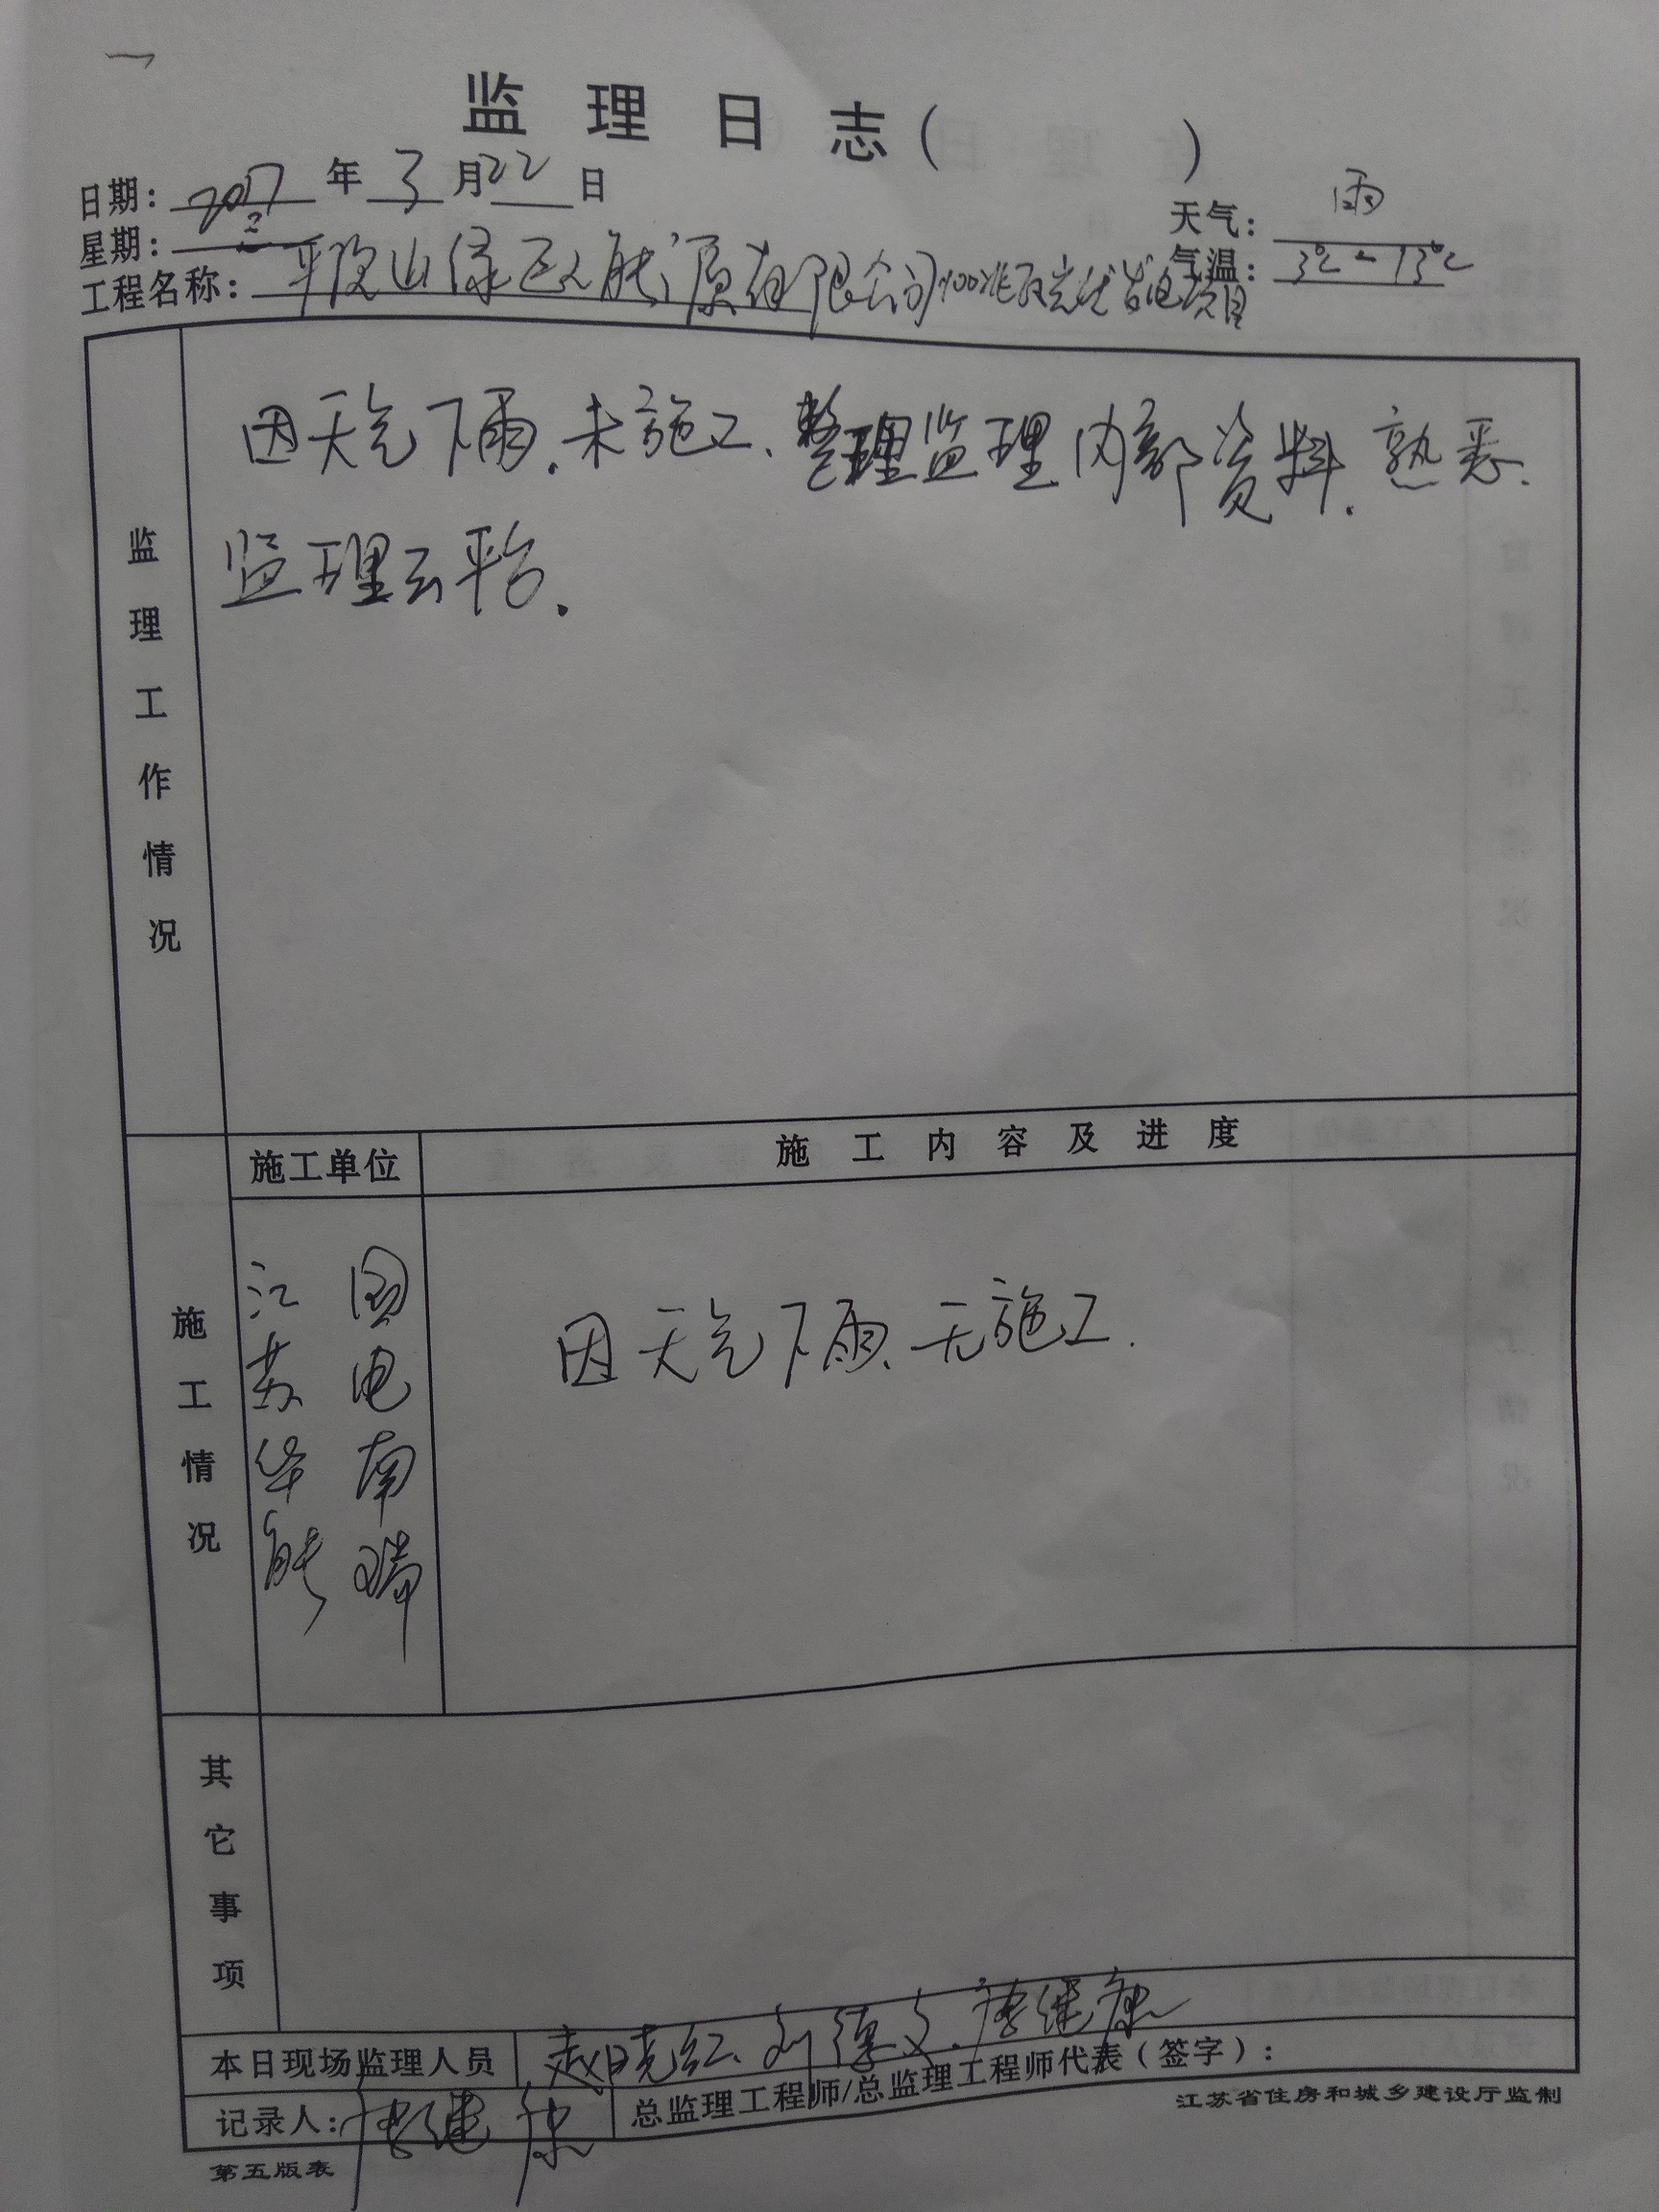 监理日志( )
日期: 2017 年 3 月 22 日
天气: 雨
星期: 三
气温: 3℃-13℃
工程名称: 平顶山绿 能源有限公司100兆瓦光伏发电项目
监理工作情况
因天气下雨.未施工、整理监理内部资料.熟悉.
监理云平台.
施工单位
施工内容及进度
施工情况
江苏华能
国电南瑞
因天气下雨、无施工.
其它事项
本日现场监理人员 赵晓红、刘德文、唐继康
记录人: 唐继康 总监理工程师/总监理工程师代表(签字):
江苏省住房和城乡建设厅监制
第五版表